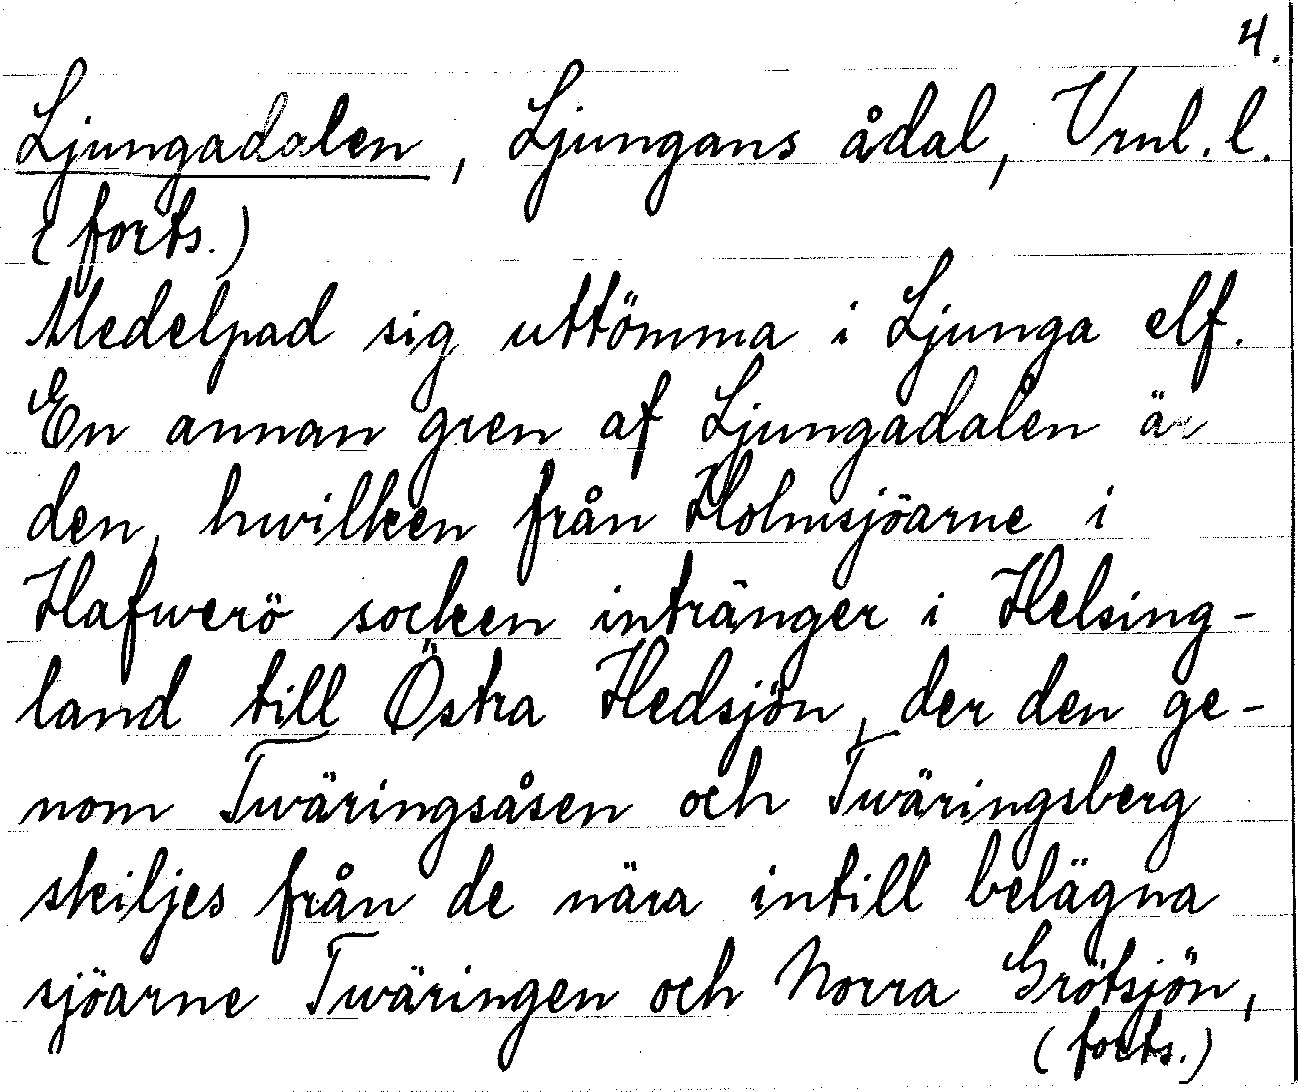 4.
Ljungadalen, Ljungans ådal, Vrnl. l.
(forts.)
Medelpad sig uttömma i Ljunga elf.
En annan gren af Ljungadalen är
den, hwilken från Holmsjöarne i
Hafwerö socken intränger i Helsing-
land till Östra Hedsjön, der den ge-
nom Twäringsåsen och Twäringsberg
skiljes från de nära intill belägna
sjöarne Twäringen och Norra Grötsjön,
(forts.)